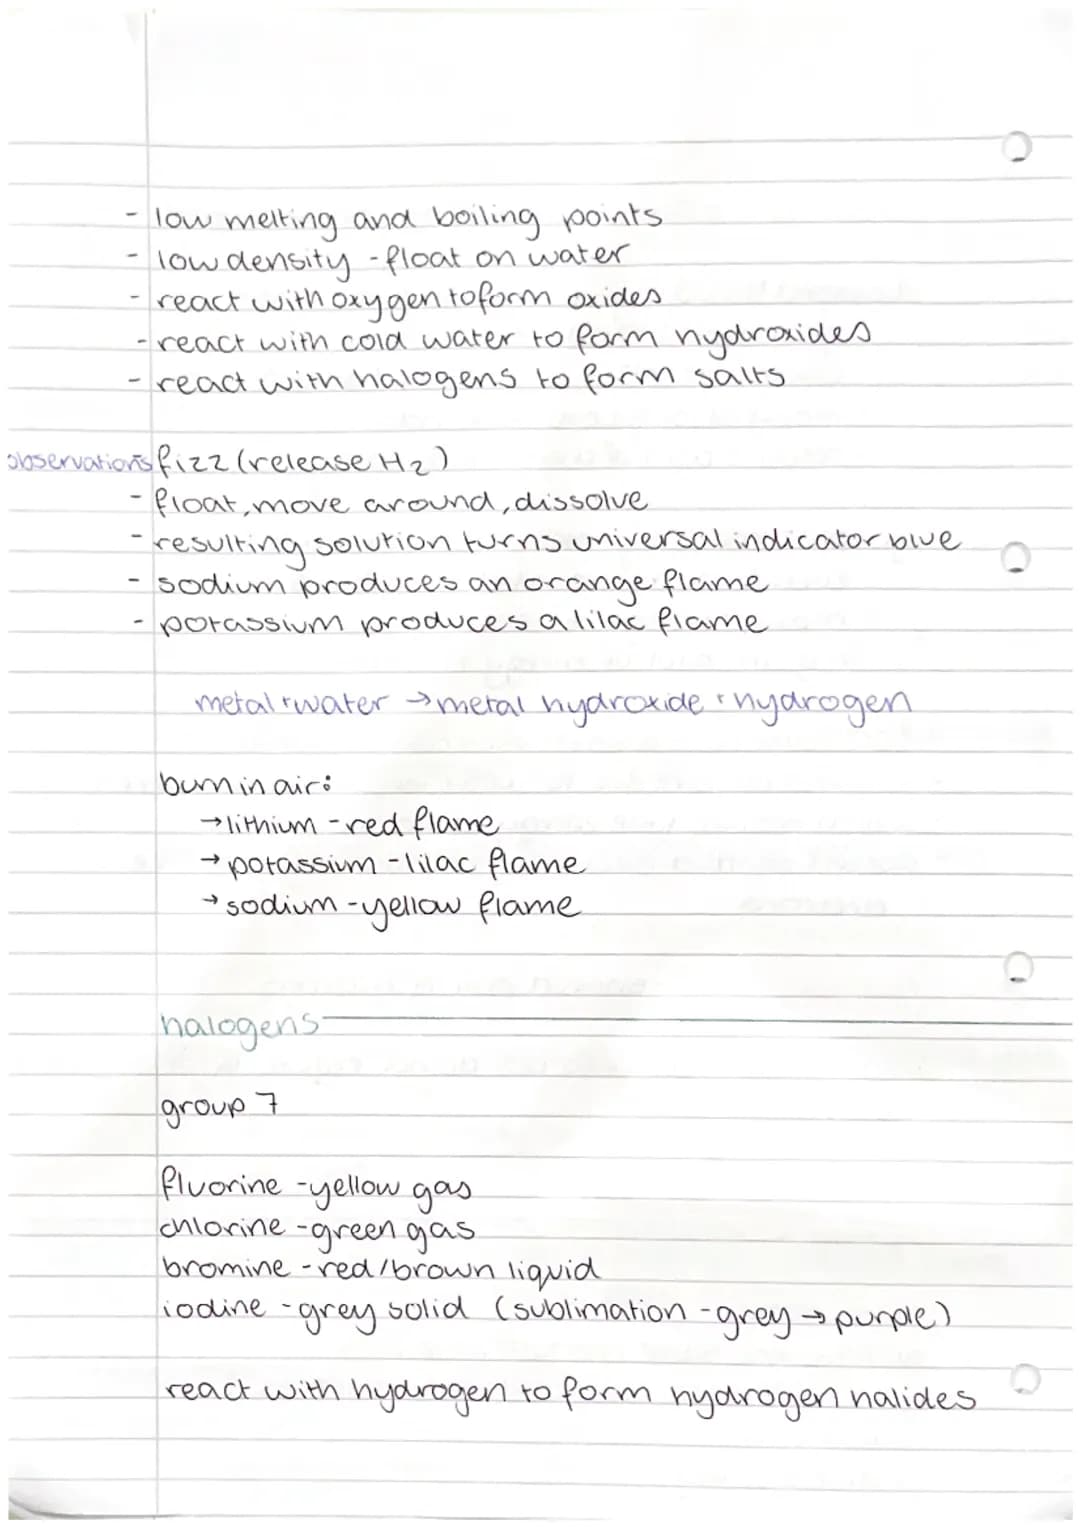 - low melting and boiling points
- low density - float on water
- react with oxygen to form oxides
- react with cold water to form hydroxides
- react with halogens to form salts
observations fizz (release H₂)
- float, move around, dissolve
- resulting solution turns universal indicator blue
- sodium produces an orange flame
- potassium produces a lilac flame
metal + water → metal hydroxide + hydrogen
burn in air:
→ lithium - red flame
→ potassium - lilac flame
→ sodium - yellow flame
halogens
group 7
fluorine - yellow gas
chlorine - green gas
bromine - red/brown liquid
iodine - grey solid (sublimation - grey → purple)
react with hydrogen to form hydrogen halides